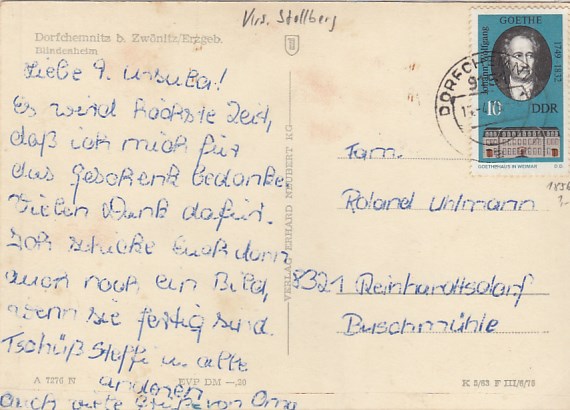 Krs. Stollberg
Dorfchemnitz b. Zwönitz/Erzgeb.
Blindenheim
Liebe T. Ursula!
Es wird höchste Zeit,
daß ich mich für
das Geschenk bedanke
Vielen Dank dafür.
Ich schicke Euch dann
auch noch ein Bild,
wenn sie fertig sind.
Tschüß Steffi u. alle
anderen
Auch viele Grüße von Oma
A 7276 N
EVP DM —,20
VERLAG ERHARD NEUBERT KG
GOETHE
Johann Wolfgang
1749 1832
10
DDR
GOETHEHAUS IN WEIMAR
DORFCH
Fam.
Roland Uhlmann
8321 Reinhardtsdorf
Buschmühle
K 2/63 F III/6/73